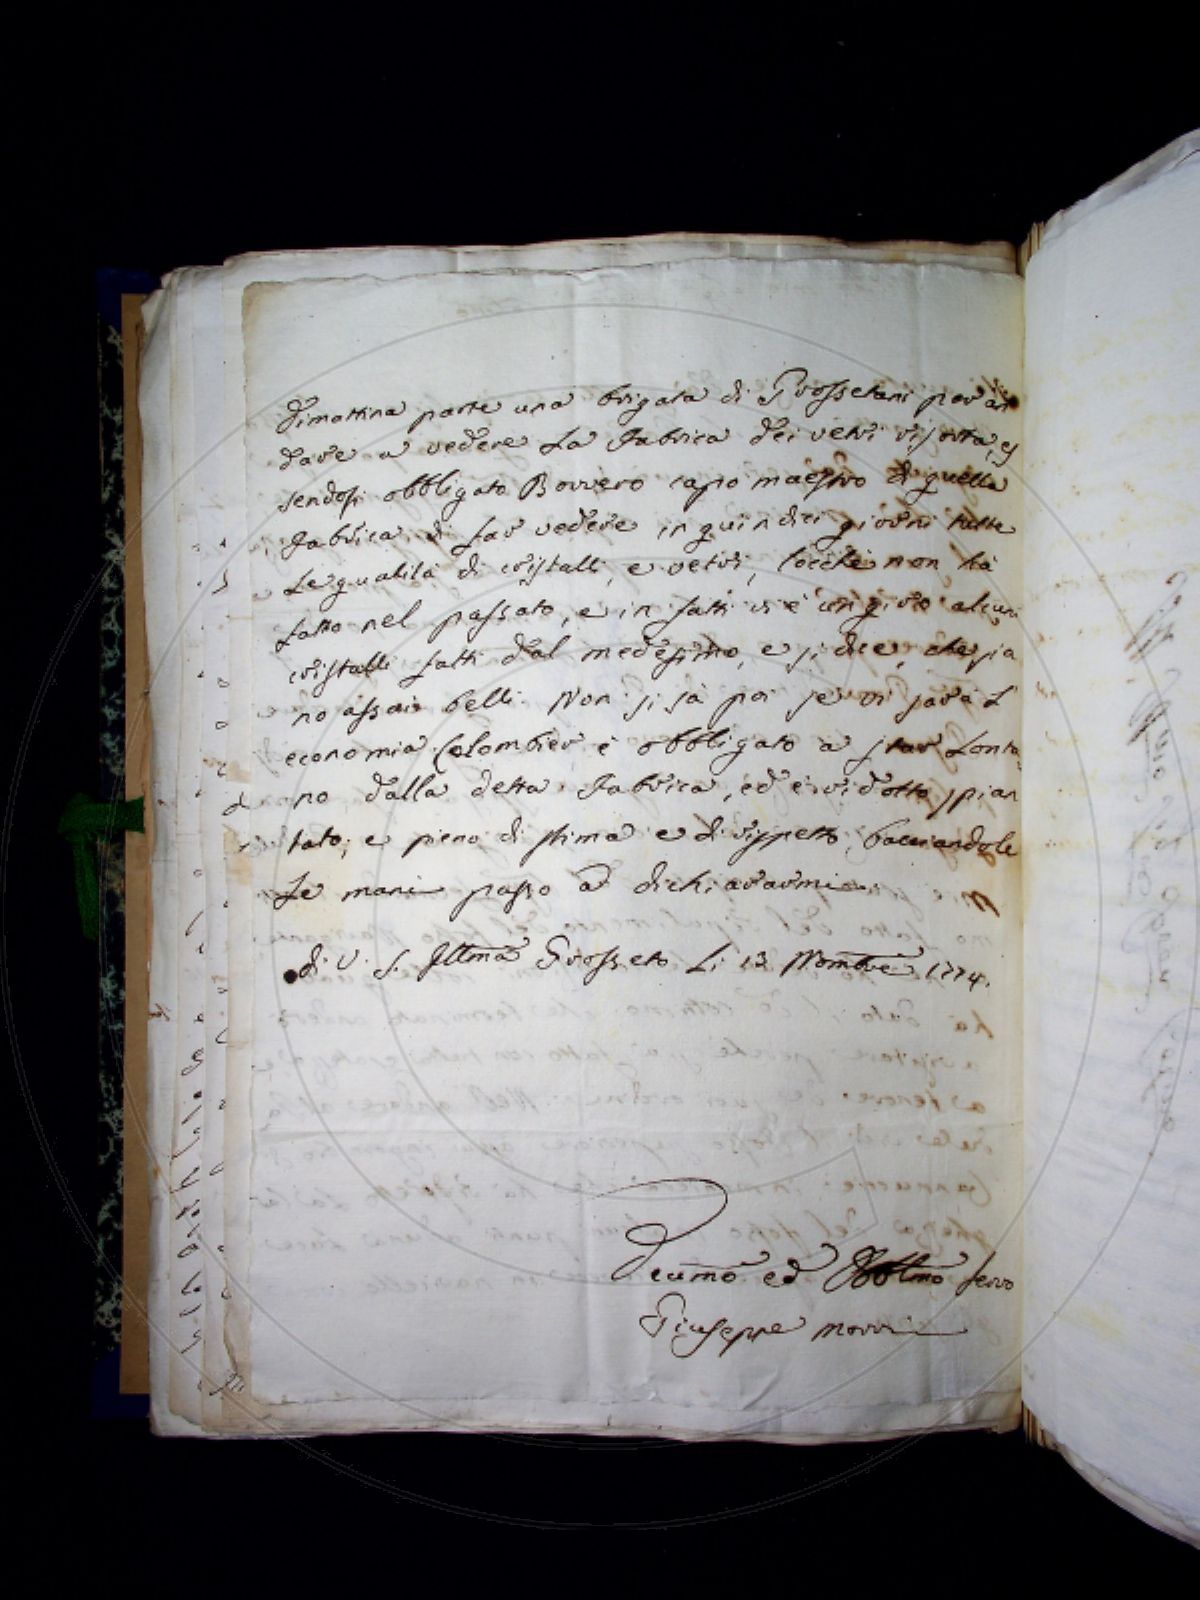 Dimattina parte una brigata di Grossetani per an
dare a vedere la Fabrica dei vetri risorta, es
sendosi obbligato Borrero capo maestro di quella
Fabrica di far vedere in quindici giorni tutte
le qualità di cristalli, e vetri, locchè non hà
fatto nel passato, e in fatti vi è in giro alcuni
cristalli fatti dal medesimo, e si dice, che sia
no assai belli. Non si sà poi se vi sarà l'
economia. Colombier è obbligato a star lonta
no dalla detta Fabrica, ed è ridotto spian
tato; e pieno di stima e di rispetto, bacciandole
le mani passo a dichiararmi
di V. S. Illma Grosseto li 13 Novembre 1774.
Devmo ed Obblmo Servo
Giuseppe Morri